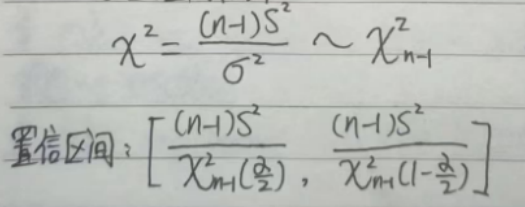 χ² = (n-1)S² / σ² ~ χ²ₙ₋₁
置信区间: [ (n-1)S² / χ²ₙ₋₁(α/2) , (n-1)S² / χ²ₙ₋₁(1-α/2) ]